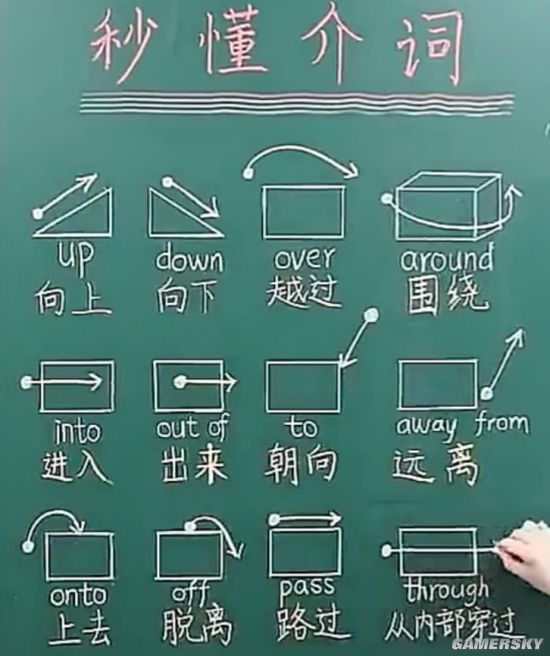 秒懂介词
up down over around
向上 向下 越过 围绕
into out of to away from
进入 出来 朝向 远离
onto off pass through
上去 脱离 路过 从内部穿过
GAMERSKY